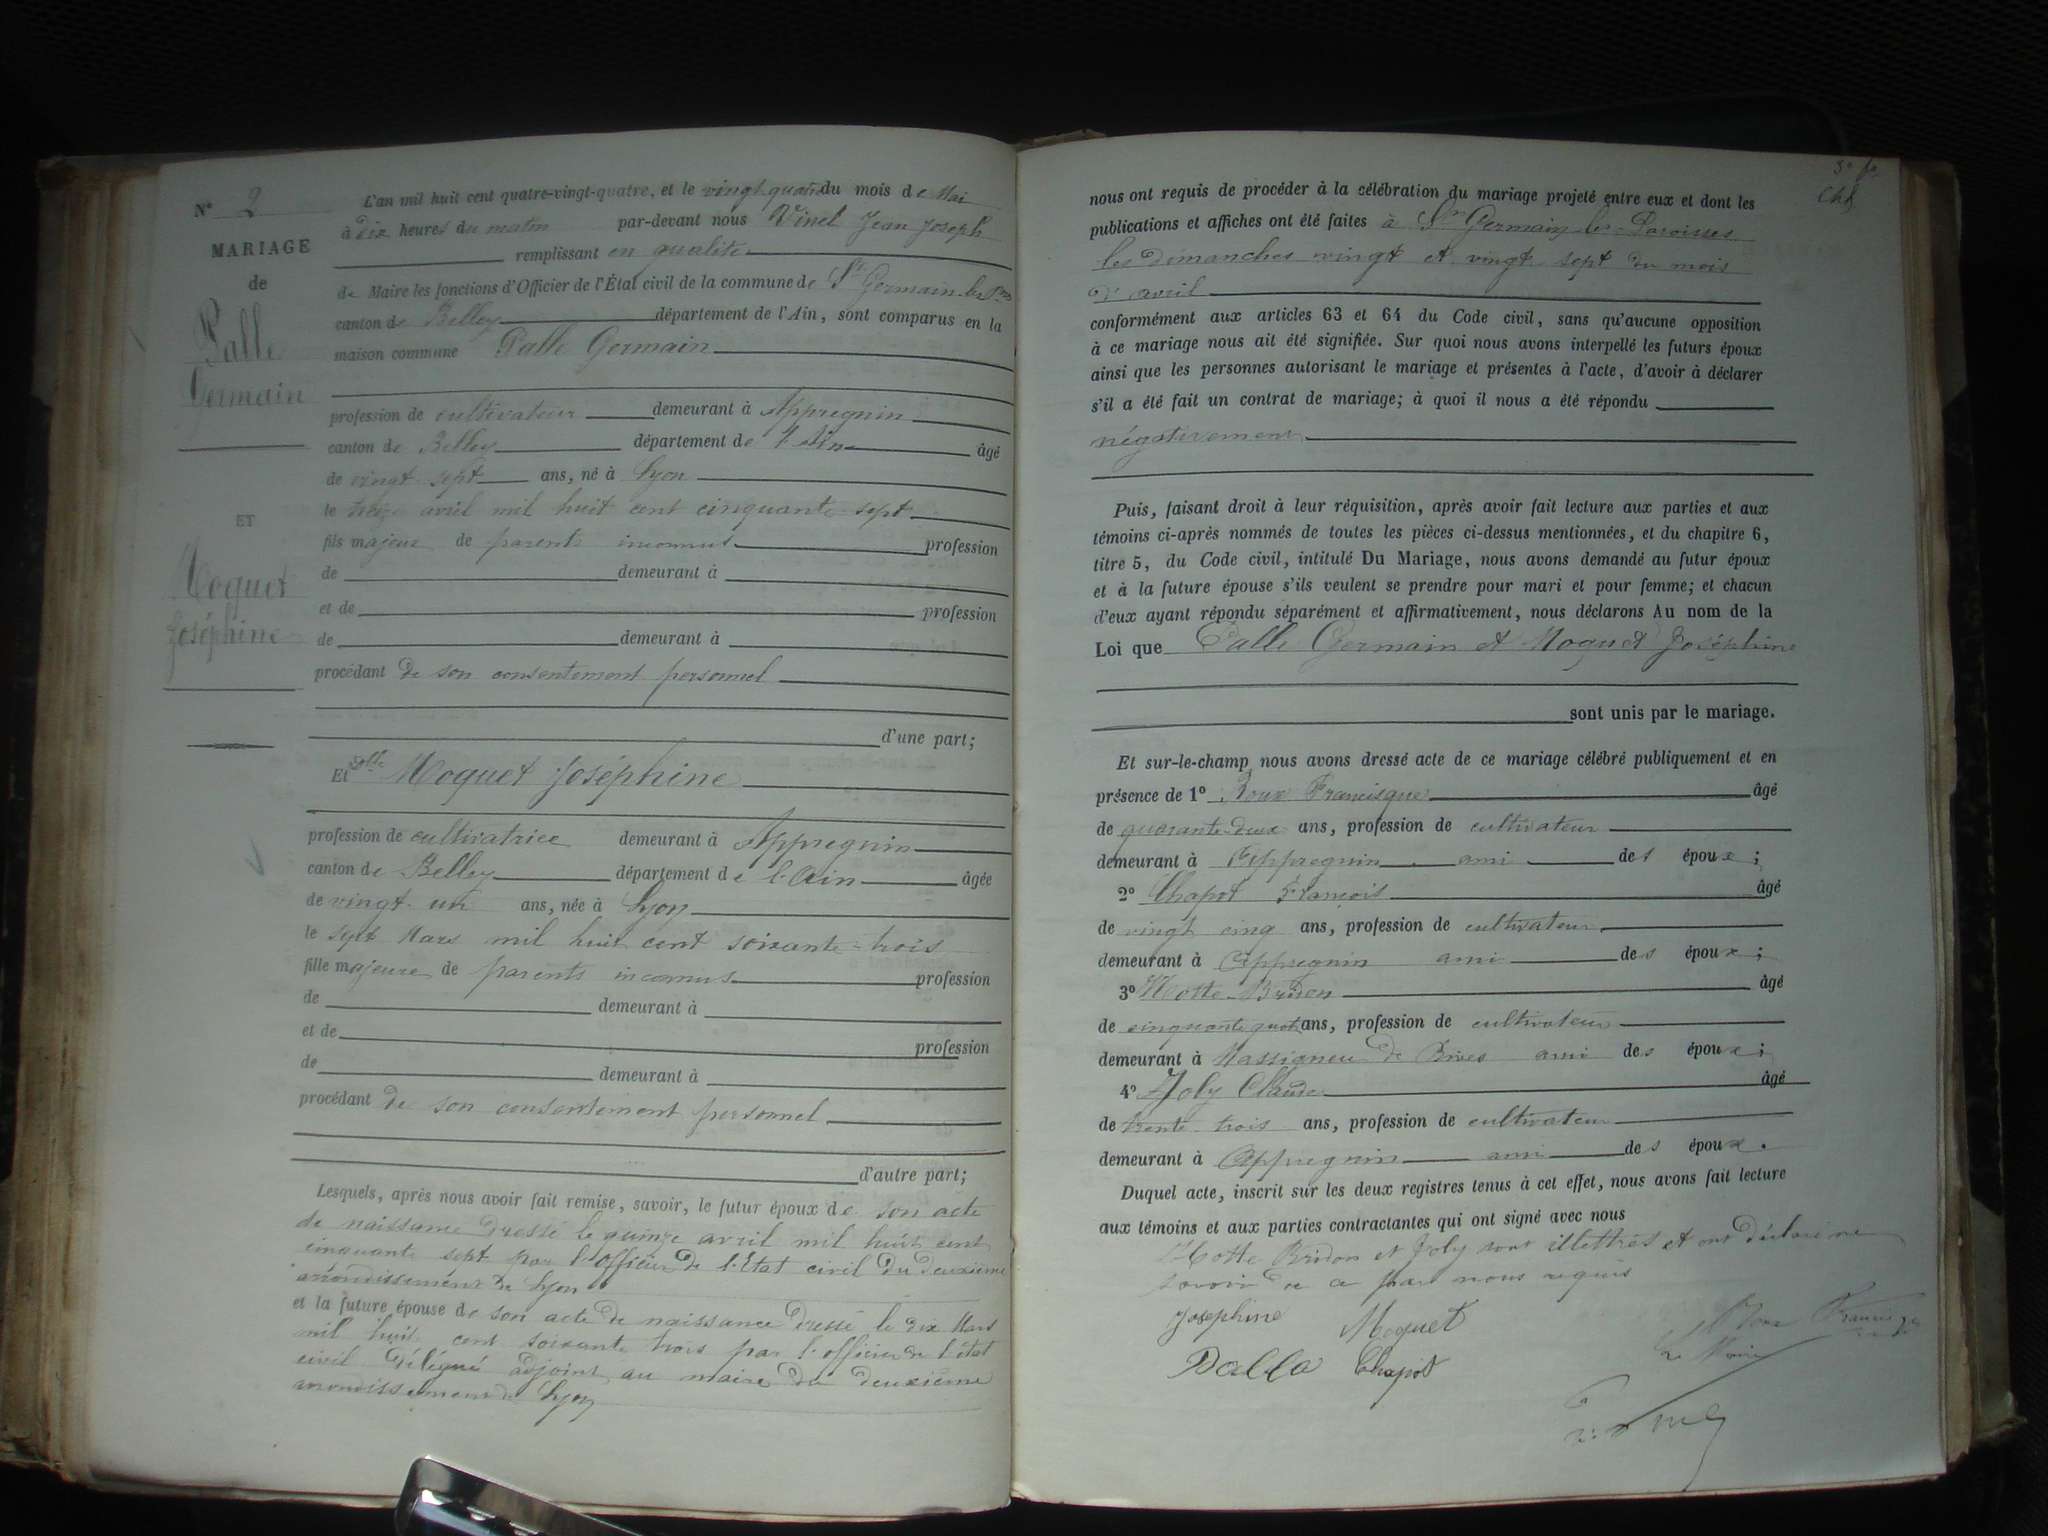 N° 2
MARIAGE
de
Palle
Germain
ET
Moquet
Joséphine
L'an mil huit cent quatre-vingt-quatre, et le vingt quatre du mois de Mai
à dix heures du matin par-devant nous Vinel Jean Joseph
remplissant en qualité
de Maire les fonctions d'Officier de l'État civil de la commune de St Germain-les-Pses
canton de Belley département de l'Ain, sont comparus en la
maison commune Palle Germain
profession de cultivateur demeurant à Appregnin
canton de Belley département de l'Ain âgé
de vingt sept ans, né à Lyon
le treize avril mil huit cent cinquante-sept
fils majeur de parents inconnus profession
de demeurant à
et de profession
de demeurant à
procédant de son consentement personnel
d'une part;
Et Dlle Moquet Joséphine
profession de cultivatrice demeurant à Appregnin
canton de Belley département de l'Ain âgée
de vingt-un ans, née à Lyon
le sept Mars mil huit cent soixante-trois
fille majeure de parents inconnus profession
de demeurant à
et de profession
de demeurant à
procédant de son consentement personnel
d'autre part;
Lesquels, après nous avoir fait remise, savoir, le futur époux de son acte
de naissance dressé le quinze avril mil huit cent
cinquante sept par l'officier de l'État civil du deuxième
arrondissement de Lyon
et la future épouse de son acte de naissance dressé le dix Mars
mil huit cent soixante trois par l'officier de l'état
civil délégué adjoint au maire du deuxième
arrondissement de Lyon
nous ont requis de procéder à la célébration du mariage projeté entre eux et dont les
publications et affiches ont été faites à St Germain-les-Paroisses
les dimanches vingt et vingt-sept du mois
d'avril
conformément aux articles 63 et 64 du Code civil, sans qu'aucune opposition
à ce mariage nous ait été signifiée. Sur quoi nous avons interpellé les futurs époux
ainsi que les personnes autorisant le mariage et présentes à l'acte, d'avoir à déclarer
s'il a été fait un contrat de mariage; à quoi il nous a été répondu
négativement
Puis, faisant droit à leur réquisition, après avoir fait lecture aux parties et aux
témoins ci-après nommés de toutes les pièces ci-dessus mentionnées, et du chapitre 6,
titre 5, du Code civil, intitulé Du Mariage, nous avons demandé au futur époux
et à la future épouse s'ils veulent se prendre pour mari et pour femme; et chacun
d'eux ayant répondu séparément et affirmativement, nous déclarons Au nom de la
Loi que Palle Germain et Moquet Joséphine
sont unis par le mariage.
Et sur-le-champ nous avons dressé acte de ce mariage célébré publiquement et en
présence de 1° Roux Francisque âgé
de quarante-deux ans, profession de cultivateur
demeurant à Appregnin ami des époux;
2° Chapot François âgé
de vingt cinq ans, profession de cultivateur
demeurant à Appregnin ami des époux;
3° Motte-Bridon âgé
de cinquante quatre ans, profession de cultivateur
demeurant à Massigneu de Rives ami des époux;
4° Joly Claude âgé
de trente-trois ans, profession de cultivateur
demeurant à Appregnin ami des époux.
Duquel acte, inscrit sur les deux registres tenus à cet effet, nous avons fait lecture
aux témoins et aux parties contractantes qui ont signé avec nous
Motte Bridon et Joly sont illettrés et ont déclaré ne
savoir de ce par nous requis
Josephine Moquet
Roux Francisque
Palle Chapot
Le Maire
Vinel